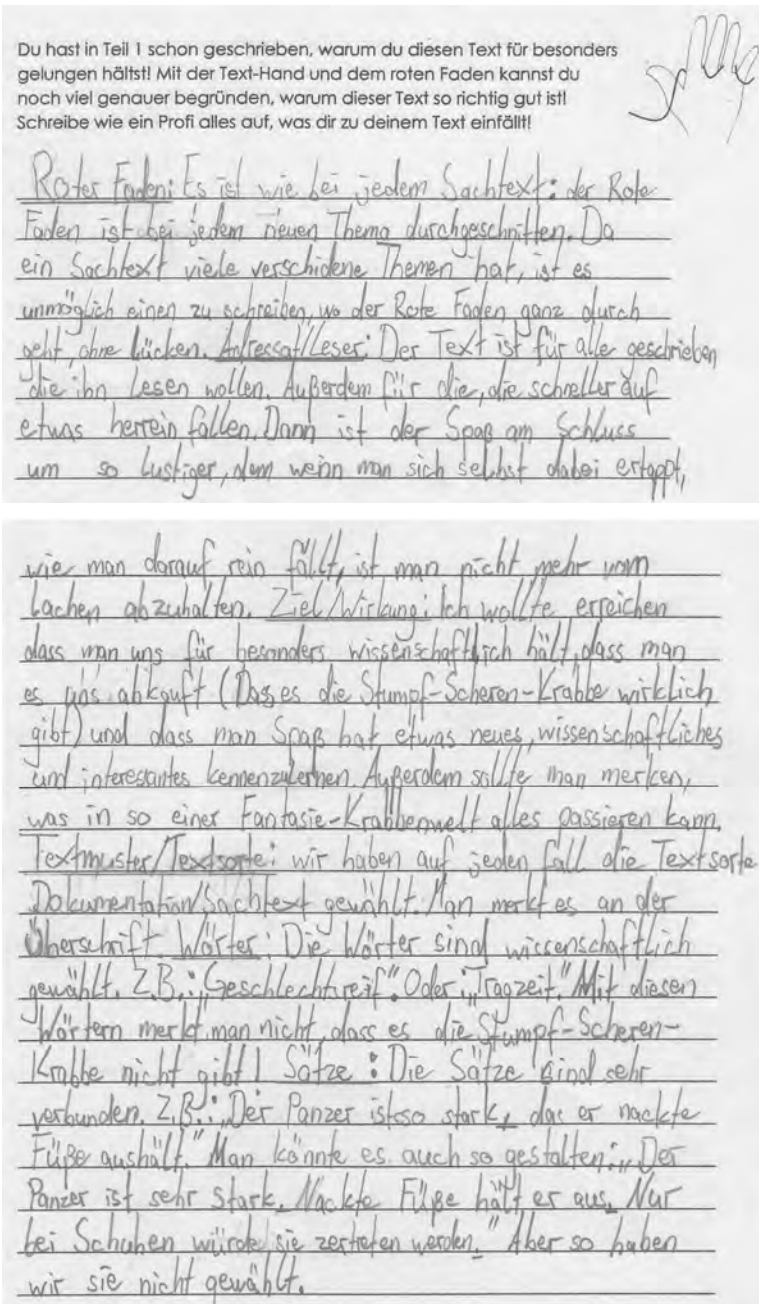 Du hast in Teil 1 schon geschrieben, warum du diesen Text für besonders
gelungen hältst! Mit der Text-Hand und dem roten Faden kannst du
noch viel genauer begründen, warum dieser Text so richtig gut ist!
Schreibe wie ein Profi alles auf, was dir zu deinem Text einfällt!
Roter Faden: Es ist wie bei jedem Sachtext: der Rote
Faden ist bei jedem neuen Thema durchgeschnitten. Da
ein Sachtext viele verschidene Themen hat, ist es
unmöglich einen zu schreiben, wo der Rote Faden ganz durch
geht, ohne Lücken. Adressat/Leser: Der Text ist für alle geschrieben
die ihn Lesen wollen. Außerdem für die, die schneller auf
etwas herrein fallen. Dann ist der Spaß am Schluss
um so lustiger, denn wenn man sich selbst dabei ertappt,
wie man darauf rein fällt, ist man nicht mehr vom
Lachen abzuhalten. Ziel/Wirkung: Ich wollte erreichen
dass man uns für besonders wissenschaftlich hält, dass man
es uns abkauft (Dass es die Stumpf-Scheren-Krabbe wirklich
gibt) und dass man Spaß hat etwas neues, wissenschaftliches
und interessantes kennenzulernen. Außerdem sollte man merken,
was in so einer Fantasie-Krabbenwelt alles passieren kann.
Textmuster/Textsorte: wir haben auf jeden fall die Textsorte
Dokumentation/Sachtext gewählt. Man merkt es an der
Überschrift. Wörter: Die Wörter sind wissenschaftlich
gewählt. Z.B.: „Geschlechtsreif". Oder: „Tragzeit." Mit diesen
Wörtern merkt man nicht, dass es die Stumpf-Scheren-
Krabbe nicht gibt! Sätze: Die Sätze sind sehr
verbunden. Z.B.: „Der Panzer ist so stark, das er nackte
Füße aushält." Man könnte es auch so gestalten: „Der
Panzer ist sehr stark. Nackte Füße hält er aus. Nur
bei Schuhen würde sie zertreten werden." Aber so haben
wir sie nicht gewählt.